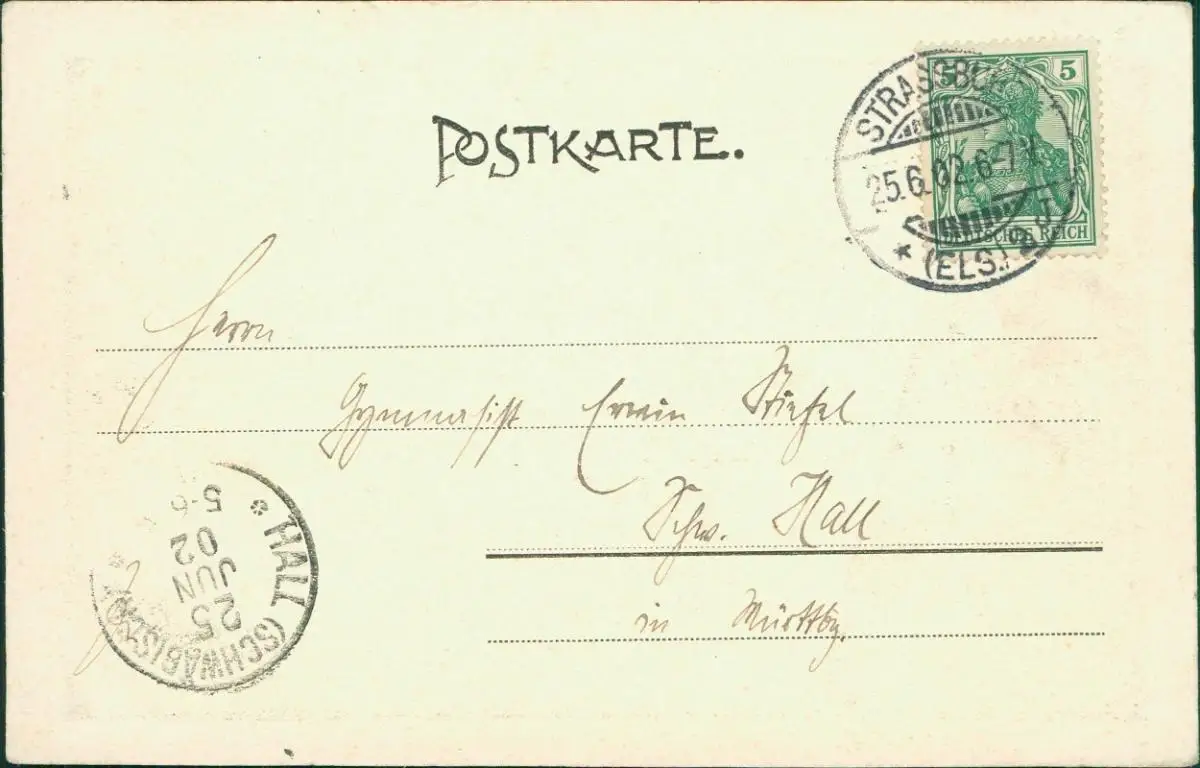 POSTKARTE.
5 5
DEUTSCHES REICH
STRASSBURG
25.6.02.6-7
* (ELS.) 2
Herrn
Gymnasist Erwin Stiefel
Schw. Hall
in Württbg.
* HALL (SCHWÄBISCH) *
25
JUN
02
5-6